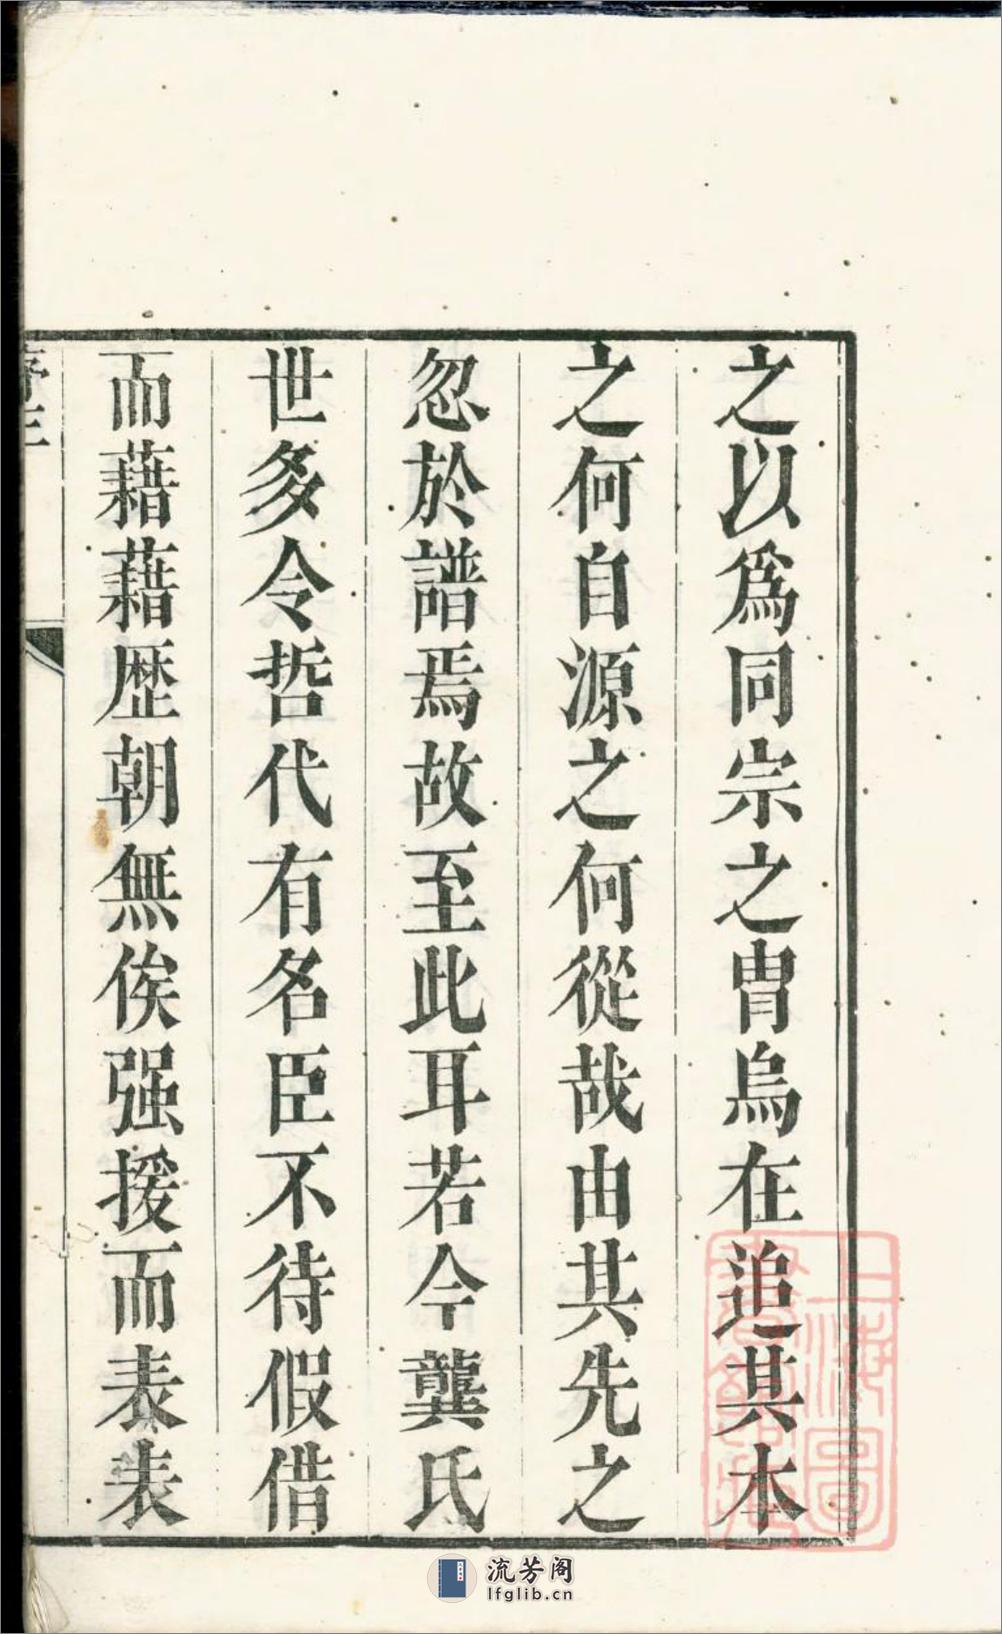 之以爲同宗之胄烏在追其本
之何自源之何從哉由其先之
忽於譜焉故至此耳若今龔氏
世多令哲代有名臣不待假借
而藉藉歴朝無俟强援而表表
上海圖書館藏
流芳阁
lfglib.cn